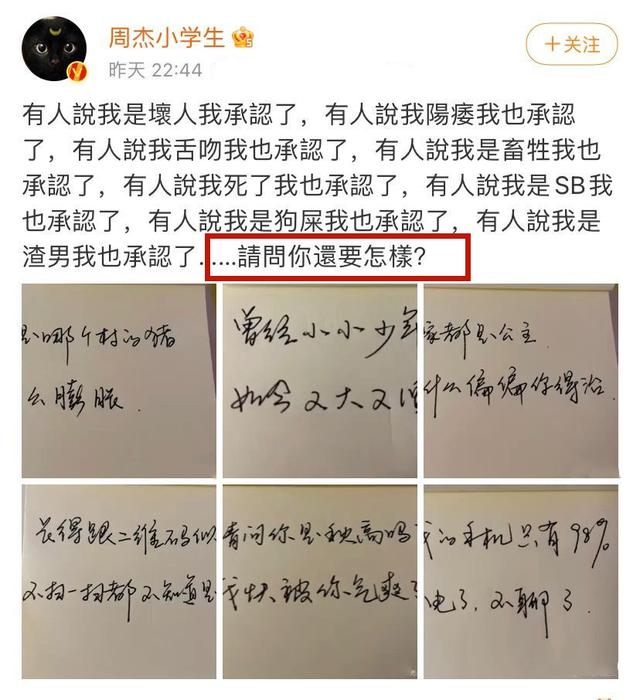 周杰小学生
昨天 22:44
+关注
有人說我是壞人我承認了，有人說我陽痿我也承認
了，有人說我舌吻我也承認了，有人說我是畜牲我也
承認了，有人說我死了我也承認了，有人說我是SB我
也承認了，有人說我是狗屎我也承認了，有人說我是
渣男我也承認了......請問你還要怎樣?
是哪个村的猪
么膨胀.
曾经小小少年
如今又大又
家都是公主
什么偏偏你得治.
长得跟二维码似
不扫一扫都不知道是
请问你是秋高吗
我快被你气爽了
我的手机只有98%
电了，不聊了.